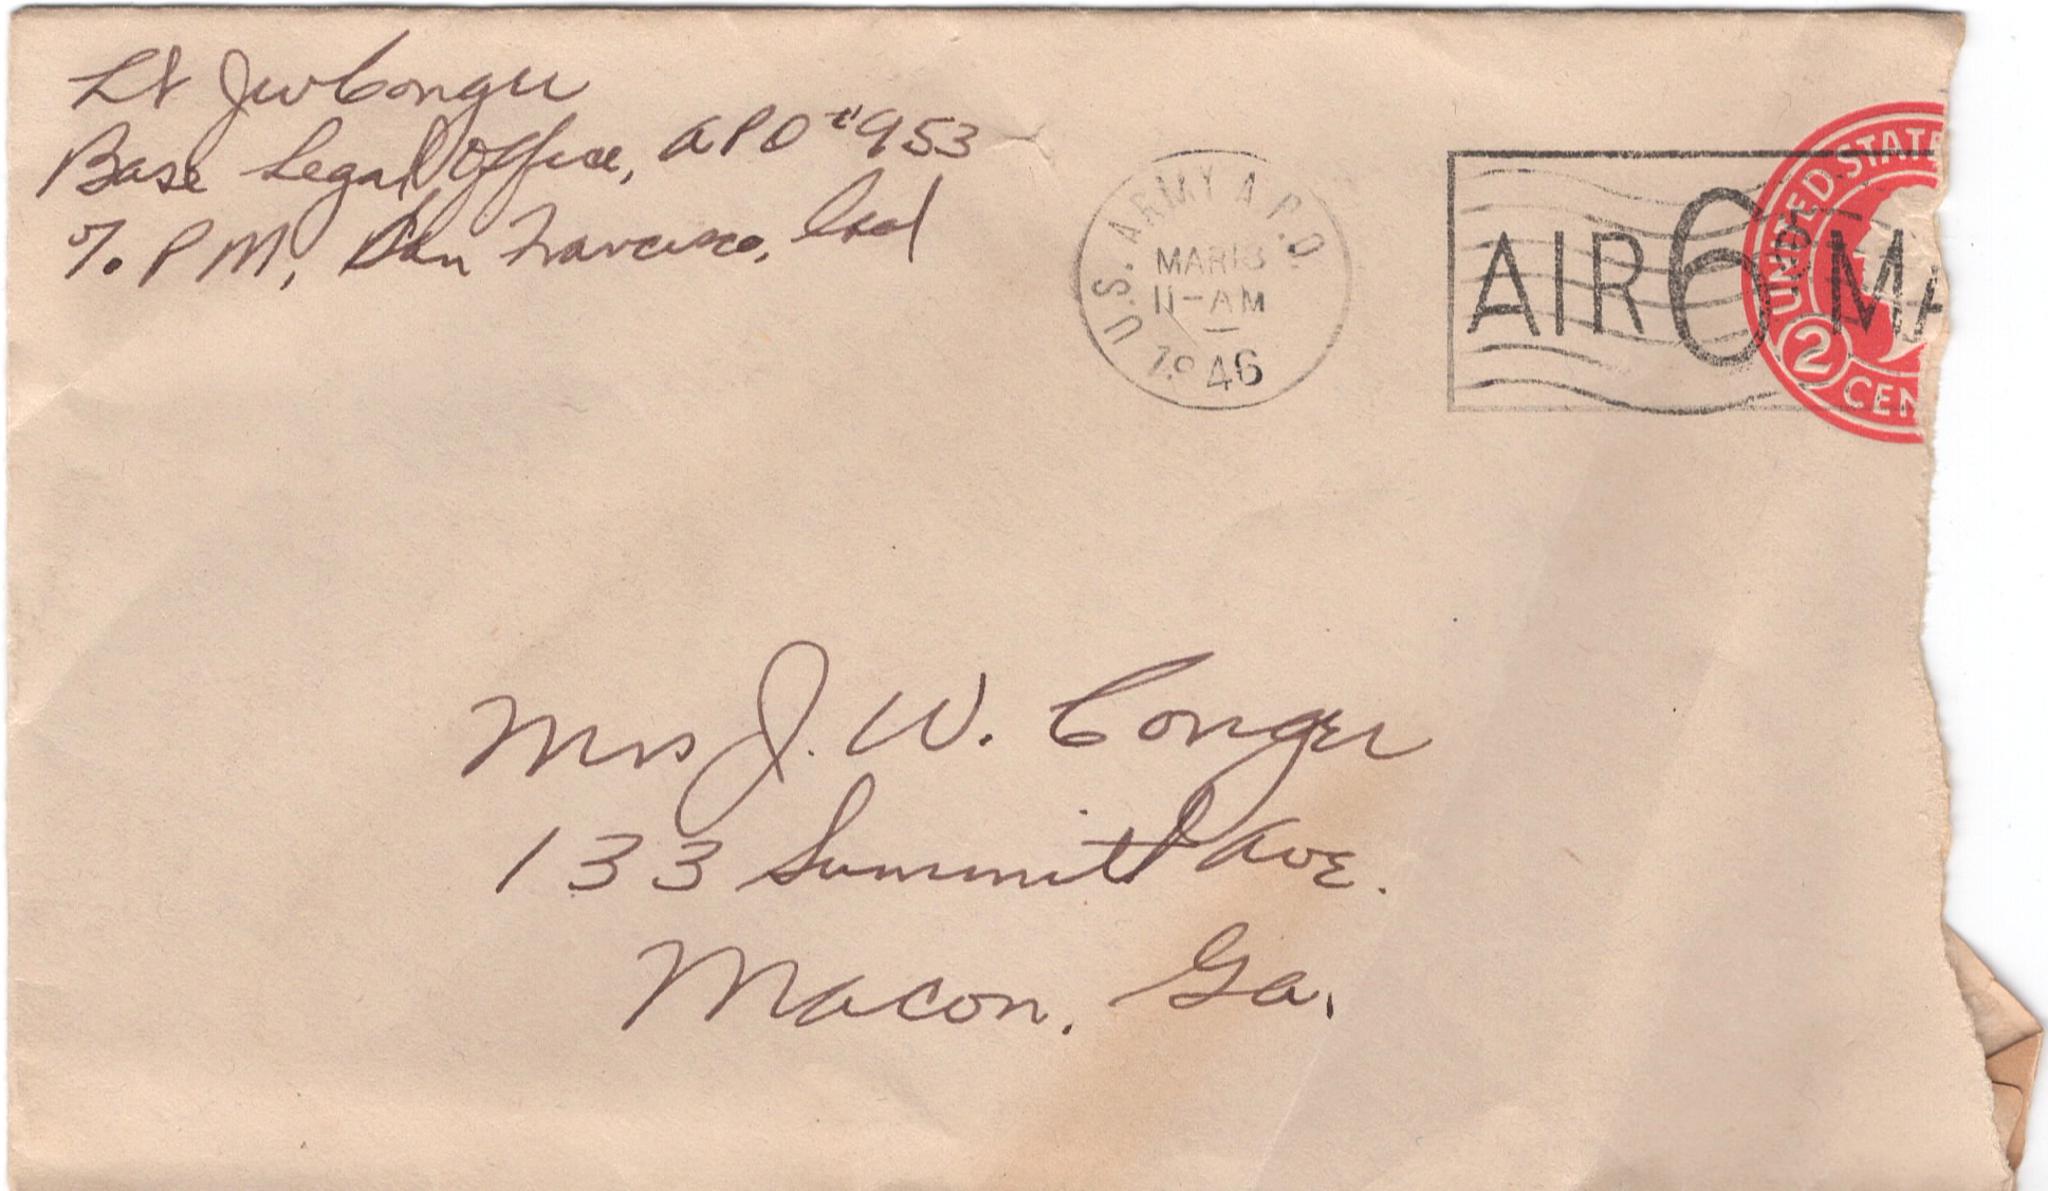 Lt JW Conger
Base Legal Office, APO #953
% PM, San Francisco, Cal
U.S. ARMY A.P.O.
MAR 13
11-AM
1946
AIR 6 MA
UNITED STATE
2 CEN
Mrs J. W. Conger
133 Summitt Ave.
Macon, Ga.